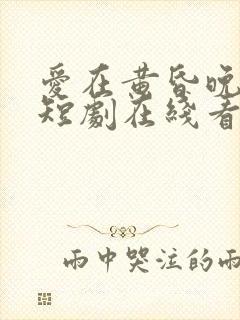 愛在黄昏晚
短劇在綫看
雨中哭泣的雨